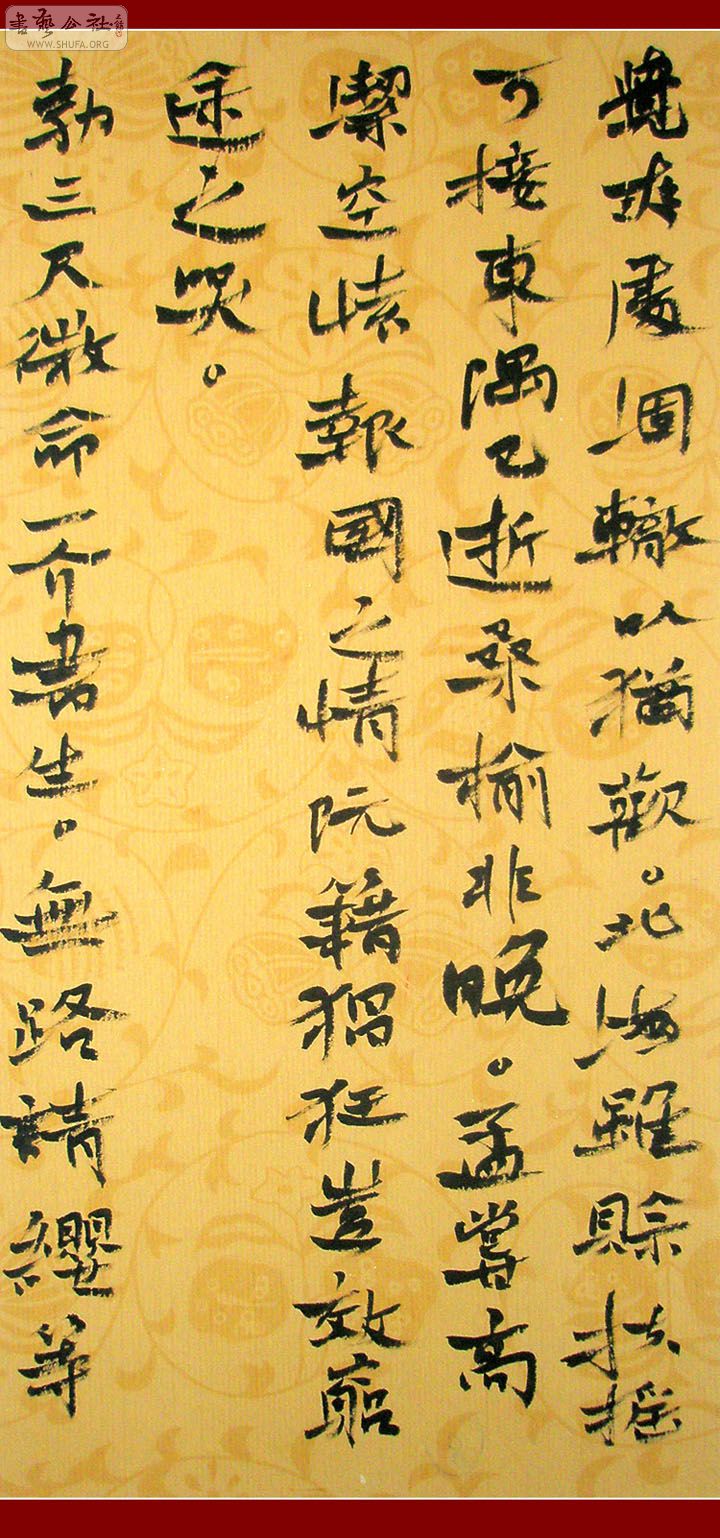 覺爽處涸轍以猶歡。北海雖賒扶搖
可接東隅已逝桑榆非晚。孟嘗高
潔空懷報國之情阮籍猖狂豈效窮
途之哭。
勃三尺微命一介書生。無路請纓等
書藝公社
WWW.SHUFA.ORG